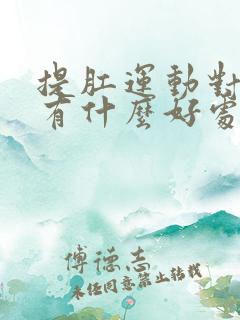 提肛運動對
有什麼好處
傅德志
未经同意禁止转载